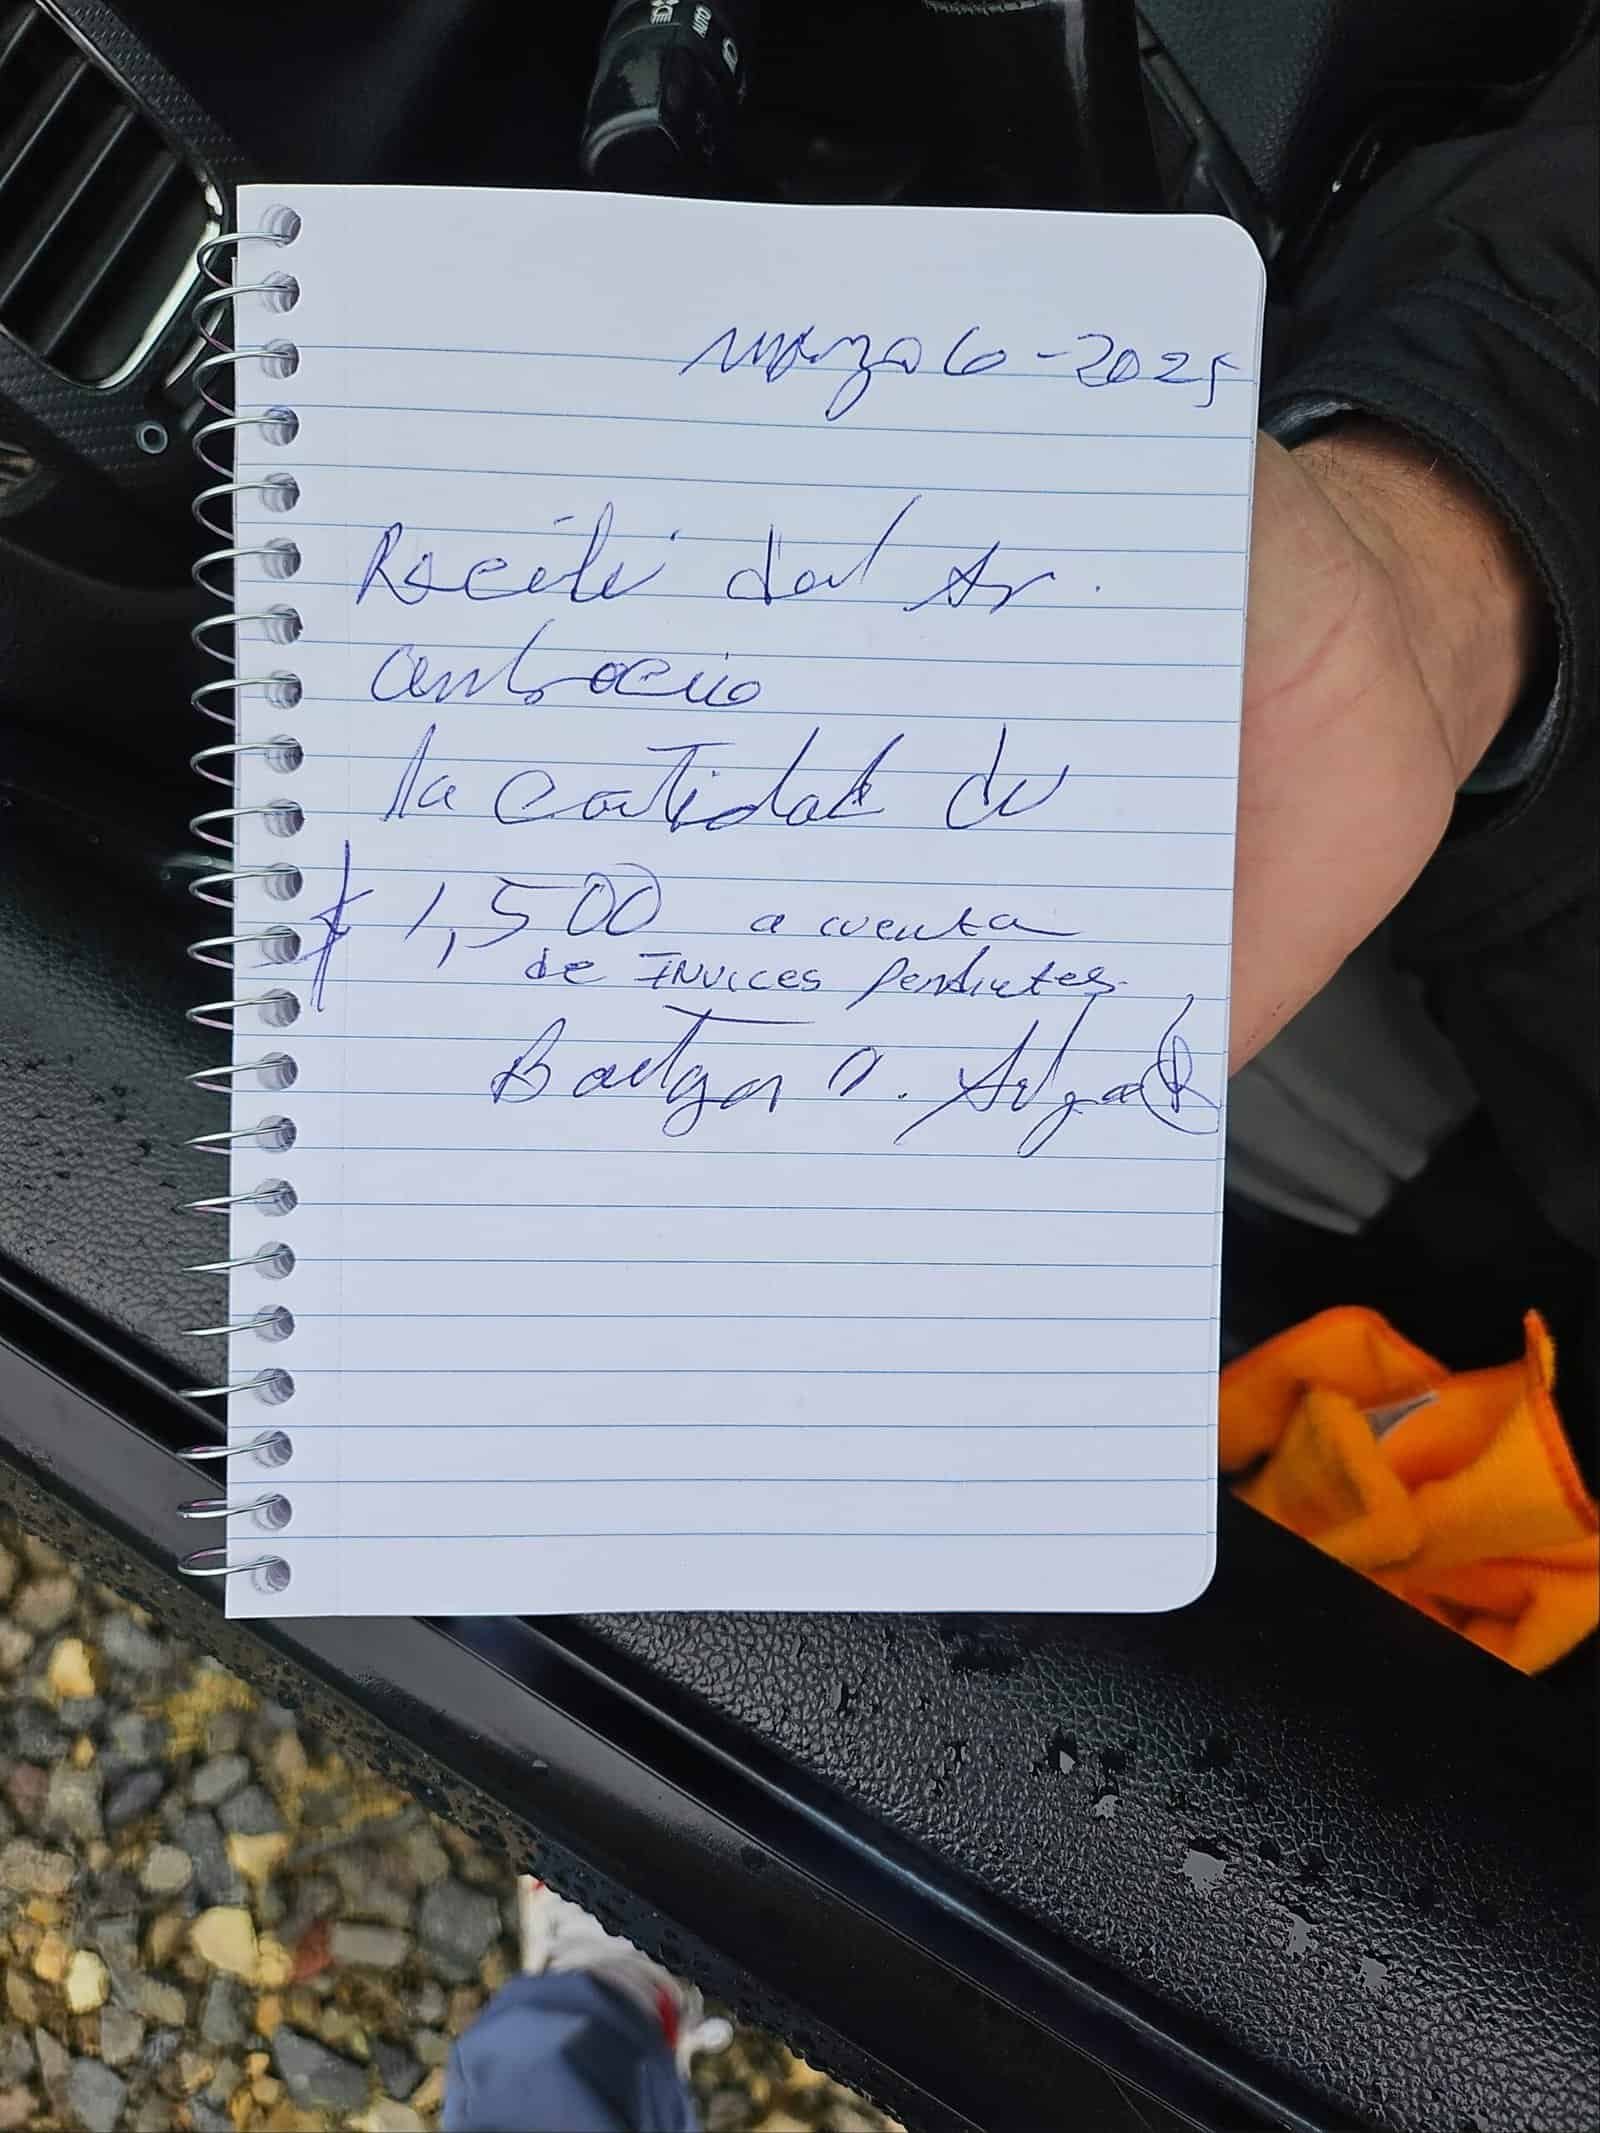 marzo 6 - 2025
Recibi del Sr.
ambrocio
la cantidad de
$ 1,500 a cuenta
de INVICES Pendientes.